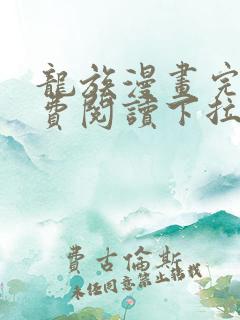 龍族漫畫完
費閱讀下拉
費古倫斯
未經同意禁止轉載